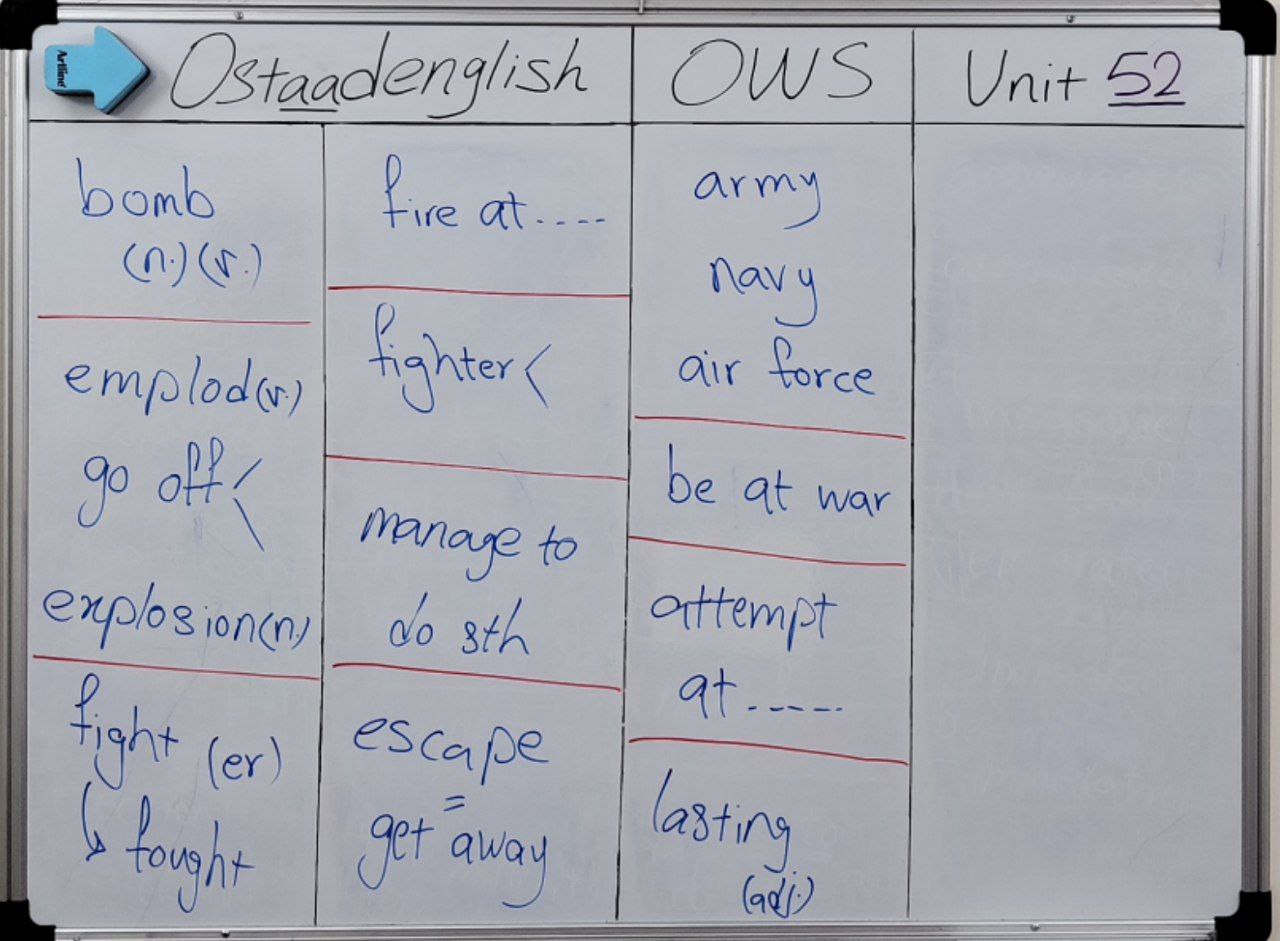 Artline
Ostaadenglish
OWS
Unit 52
bomb
(n.) (v.)
emplod (v.)
go off
explosion (n.)
fight (er)
↳ fought
fire at ....
fighter <
manage to
do sth
escape
=
get away
army
navy
air force
be at war
attempt
at .....
lasting
(adj.)